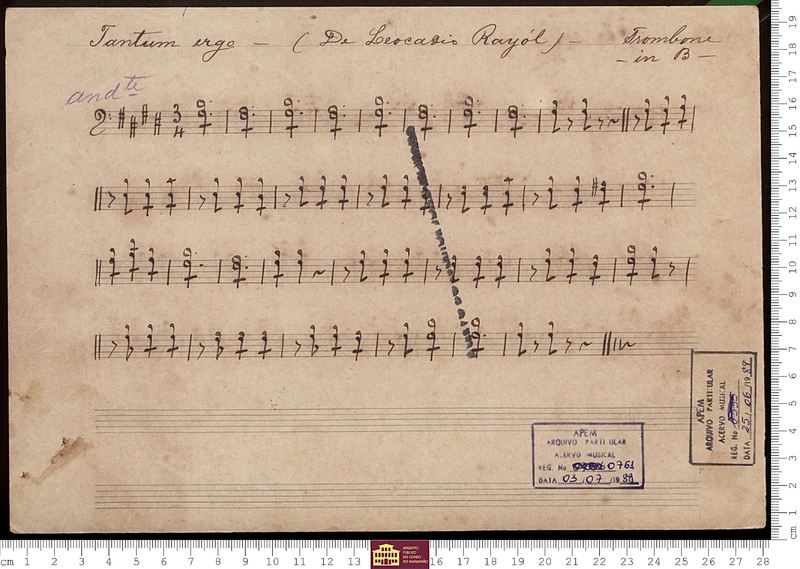 Tantum ergo — ( De Leocadio Rayól ) — Trombone
— in B —
andte
3
4
APEM
ARQUIVO PARTICULAR
ACERVO MUSICAL
REG. No 0761
DATA 03/07/1989
APEM
ARQUIVO PARTICULAR
ACERVO MUSICAL
REG. No
DATA 25/06/1989
ARQUIVO
PÚBLICO
DO ESTADO
DO MARANHÃO
cm 1 2 3 4 5 6 7 8 9 10 11 12 13 16 17 18 19 20 21 22 23 24 25 26 27 28
cm 1 2 3 4 5 6 7 8 9 10 11 12 13 14 15 16 17 18 19